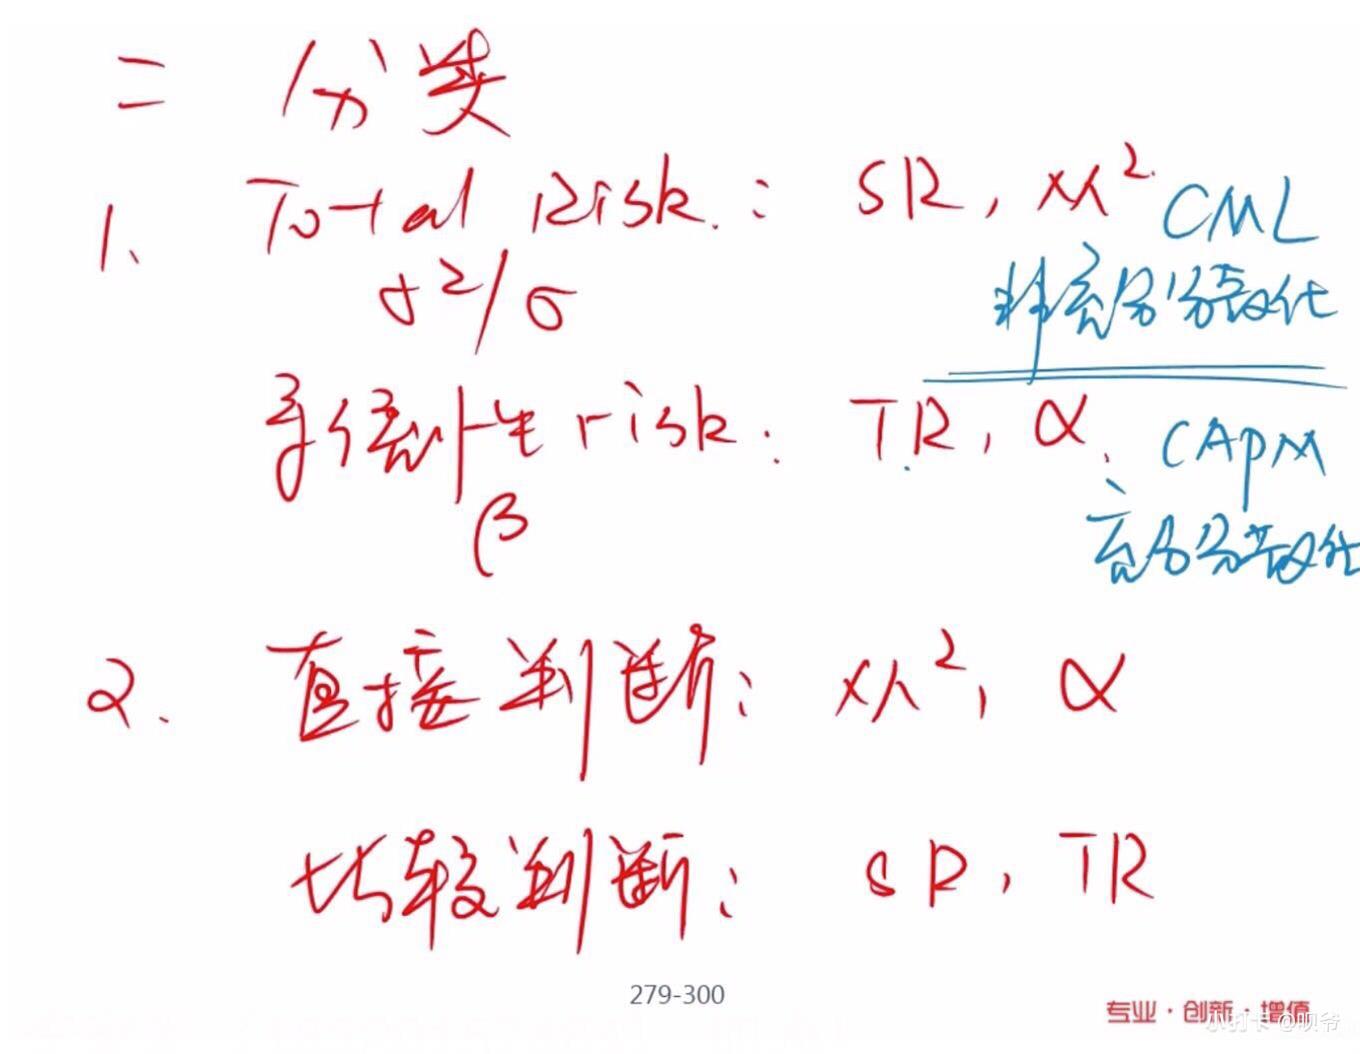 二 分类
1. Total Risk: SR, M² CML
σ²/σ 非充分分散化
系统性risk: TR, α. CAPM
β 充分分散化
2. 直接判断: M², α
比较判断: SR, TR
279-300
专业·创新·增值
小打卡 @呗爷